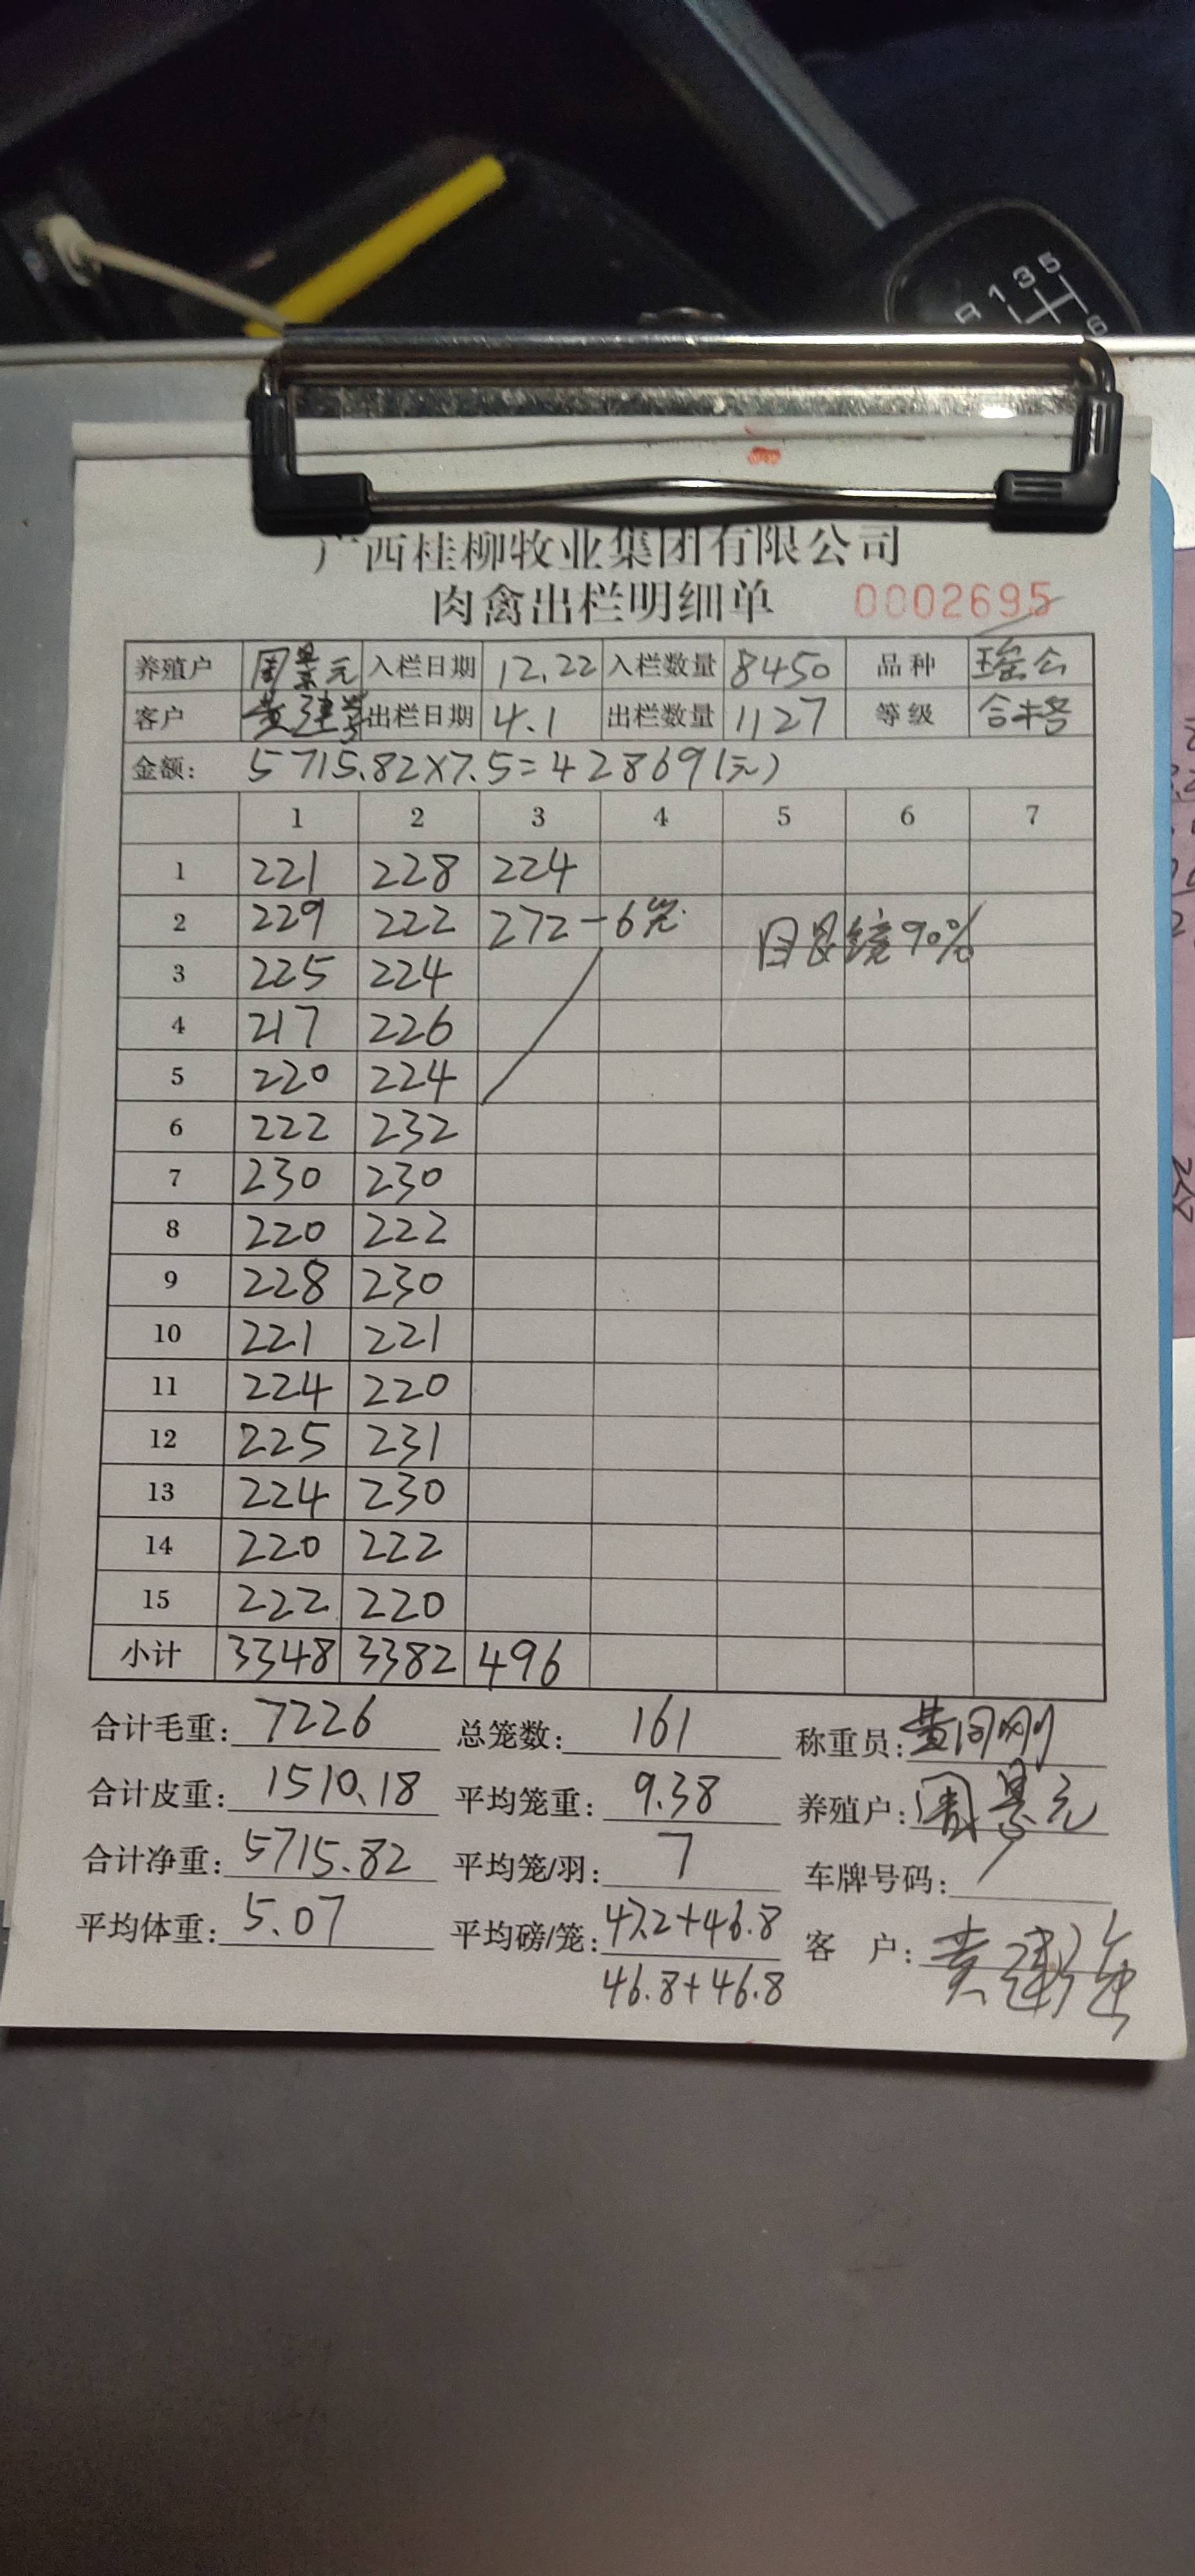 R 1 3 5
6
广西桂柳牧业集团有限公司
肉禽出栏明细单 0002695
养殖户 周景元 入栏日期 12.22 入栏数量 8450 品种 瑶公
客户 黄建 出栏日期 4.1 出栏数量 1127 等级 合格
金额: 5715.82×7.5=42869(元)
1 2 3 4 5 6 7
1 221 228 224
2 229 222 272-6 90%
3 225 224
4 217 226
5 220 224
6 222 232
7 230 230
8 220 222
9 228 230
10 221 221
11 224 220
12 225 231
13 224 230
14 220 222
15 222 220
小计 3348 3382 496
合计毛重: 7226 总笼数: 161 称重员: 黄
合计皮重: 1510.18 平均笼重: 9.38 养殖户: 周景元
合计净重: 5715.82 平均笼/羽: 7 车牌号码:
平均体重: 5.07 平均磅/笼: 47.2+46.8 客 户: 黄建
46.8+46.8